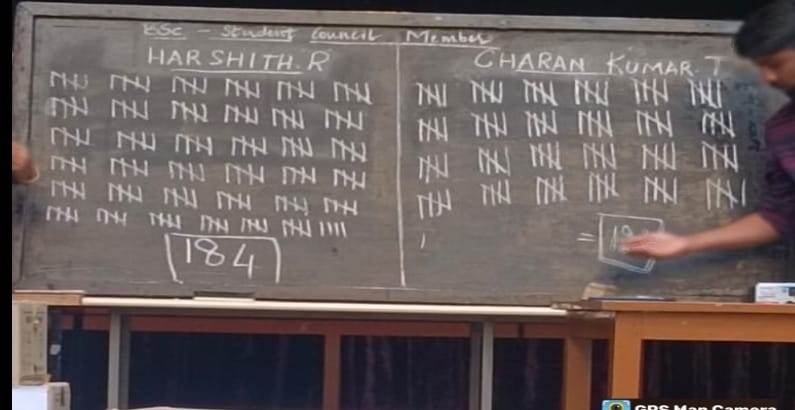 BSC - Student Council Member
HARSHITH.R
CHARAN KUMAR.T
184
=
GPS Map Camera